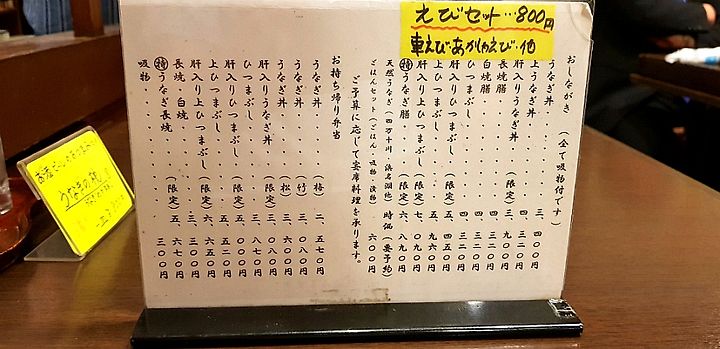 えびセット…800円
車えび・あかしゃえび・他
おしながき (全て吸物付です)
うなぎ丼 三、四〇〇円
上うなぎ丼
肝入りうなぎ丼 (限定) 三、九〇〇円
長焼膳 四、三二〇円
白焼膳 四、三二〇円
ひつまぶし
肝入りひつまぶし (限定)
上ひつまぶし 五、九六〇円
肝入り上ひつまぶし (限定)
㊕うなぎ膳 (限定) 六、八九〇円
天然うなぎ (四万十川・浜名湖他) 時価 (要予約)
ごはんセット (ごはん・吸物・漬物) 六〇〇円
ご予算に応じて宴席料理を承ります。
お持ち帰り弁当
うなぎ丼 (梅) 二、五七〇円
うなぎ丼 (竹) 三、〇八〇円
うなぎ丼 (松) 三、六〇〇円
肝入りうなぎ丼 (限定) 三、〇八〇円
ひつまぶし 三、八七〇円
肝入りひつまぶし (限定)
上ひつまぶし
肝入り上ひつまぶし (限定)
長焼・白焼
㊕うなぎ長焼 五、六七〇円
吸物 三〇〇円